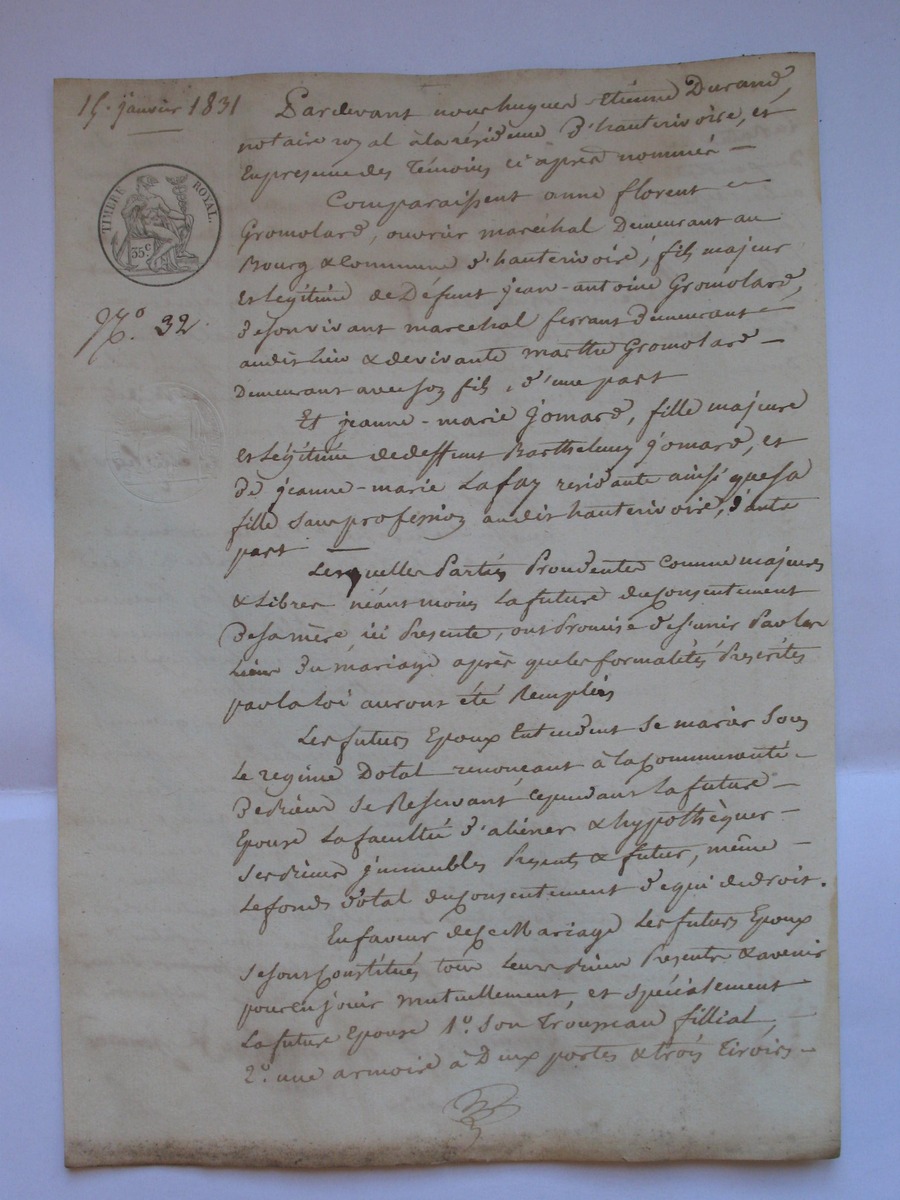 15. janvier 1831
TIMBRE ROYAL.
35 c
N.o 32.
Pardevant nous hugues-étienne Durand,
notaire royal à la résidence d'hauterivoire, et
En presence des Témoins ci après nommés –
Comparaissent anne florent
Gromolard, ouvrier maréchal Demeurant au
Bourg & Commune d'hauterivoire, fils majeur
Et légitime de Défunt jean-antoine Gromolard,
de son vivant maréchal ferrant demeurant
audit Lieu & de vivante marthe Gromolard –
Demeurant avec son fils, d'une part
Et jeanne-marie jomard, fille majeure
Et Légitime de deffunt Barthelemy jomard, et
de jeanne-marie Lafay residante ainsi que sa
fille sans profession audit hauterivoire, d'autre
part –
Lesquelles Parties Procedentes Comme majeures
& Libres néantmoins La future du Consentement
De sa mère ici Presente, ont Promis de s'unir Par les
Liens du mariage après que les formalités Prescrites
par la Loi auront été Remplies
Les futurs Epoux Entendent se marier Sous
Le regime Dotal renonçant à la Communauté –
De biens se Reservant Cependant La future –
Epouse La faculté d'aliéner & hypothèquer –
Ses biens jmmeubles Presents & futur, même –
Le fonds Dotal du Consentement de qui de droit.
En faveur de Ce Mariage Les futurs Epoux
Se sont Constitués tous Leurs biens Presents & avenir
pour En jouir mutuellement, et spécialement
La future Epouse 1.o Son Trousseau fillial, –
2.o une armoire à Deux portes & trois Tiroirs –